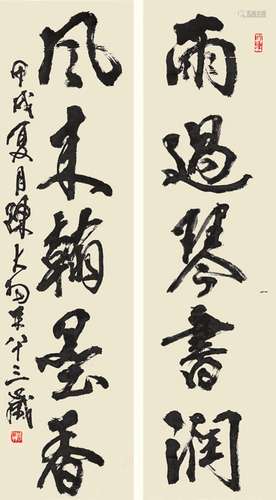 雨過琴書潤
風來翰墨香
甲戌夏月陳大羽年八十三歲